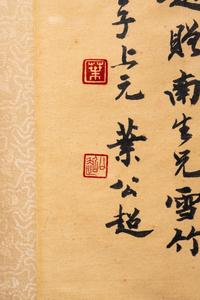 題贈南生兄雪竹
子上元 葉公超
葉
公超